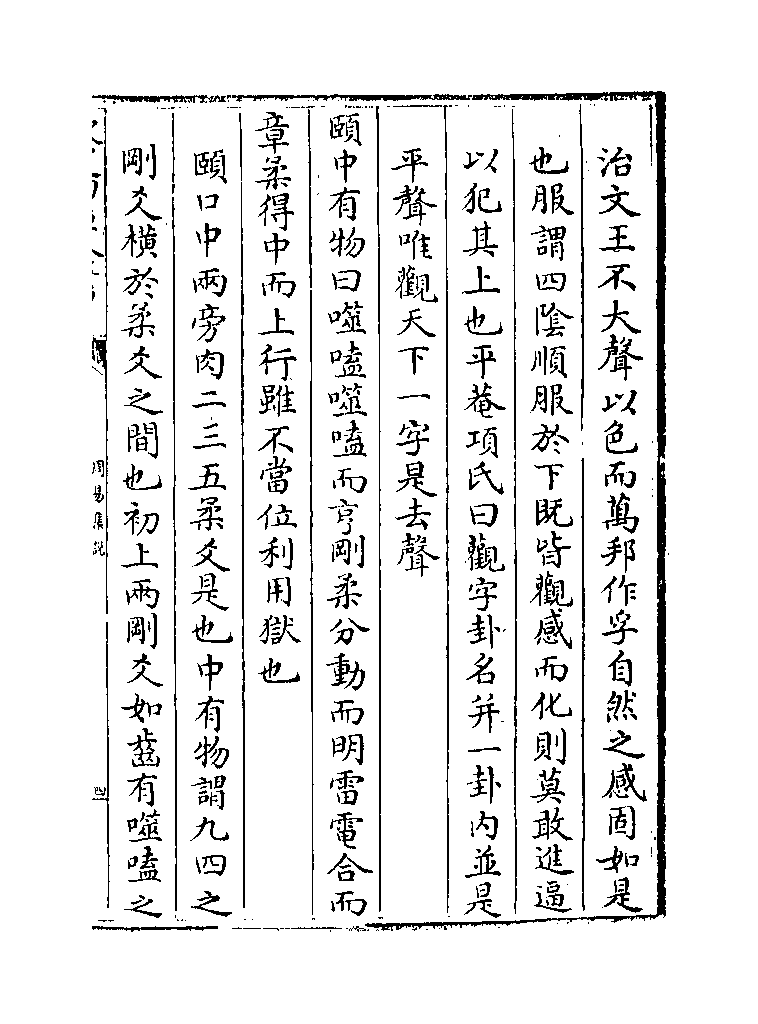 治文王不大聲以色而萬邦作孚自然之感固如是
也服謂四陰順服於下既皆觀感而化則莫敢進逼
以犯其上也平菴項氏曰觀字卦名并一卦内並是
平聲唯觀天下一字是去聲
頤中有物曰噬嗑噬嗑而亨剛柔分動而明雷電合而
章柔得中而上行雖不當位利用獄也
頤口中兩旁肉二三五柔爻是也中有物謂九四之
剛爻橫於柔爻之間也初上兩剛爻如齒有噬嗑之
周易集說
四